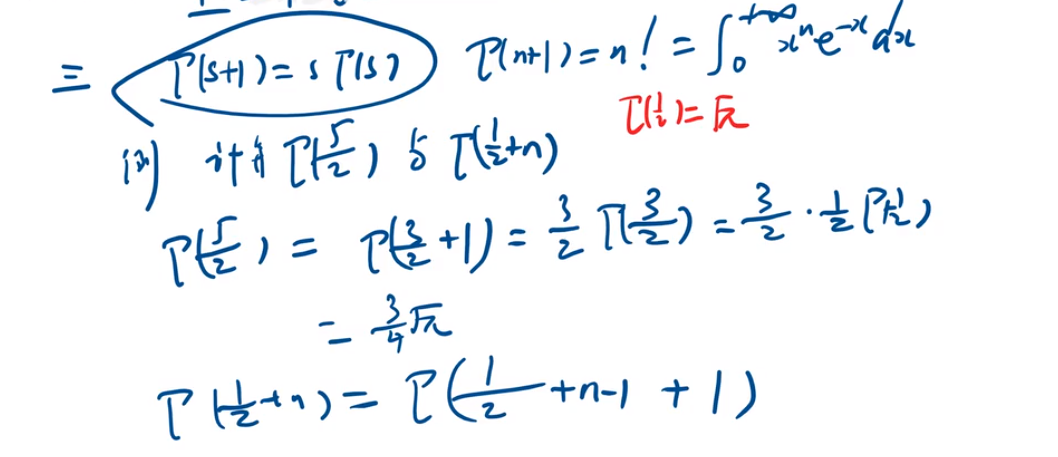 三 Γ(s+1)=sΓ(s) Γ(n+1)=n!=∫₀^{+∞} xⁿe^{-x}dx
Γ(1/2)=√π
例 计算 Γ(5/2) 与 Γ(1/2+n)
Γ(5/2) = Γ(3/2+1) = 3/2 Γ(3/2) = 3/2 · 1/2 Γ(1/2)
= 3/4 √π
Γ(1/2+n) = Γ(1/2+n-1+1)